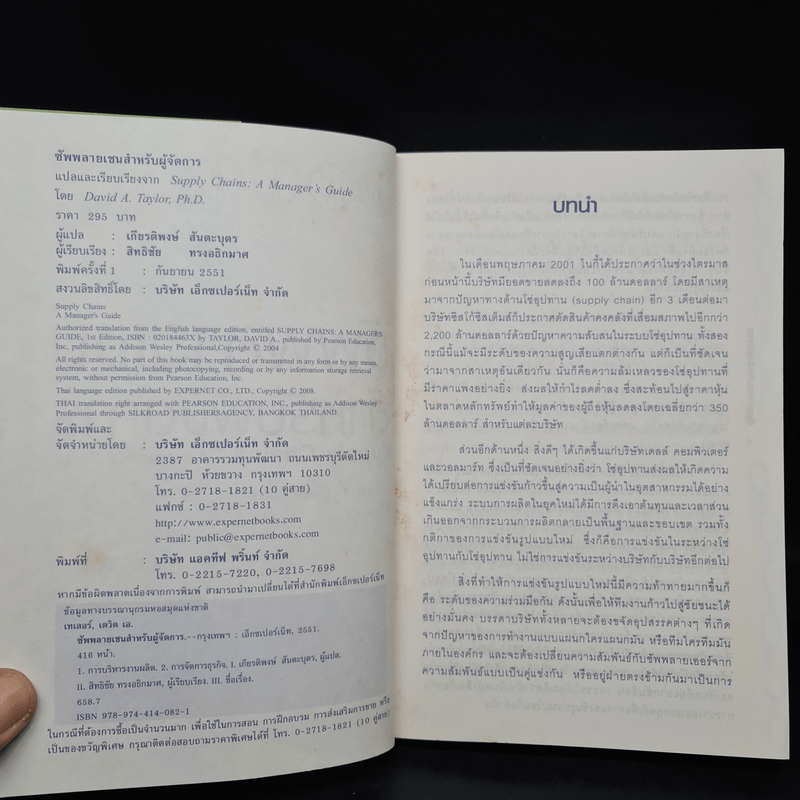 ซัพพลายเชนสำหรับผู้จัดการ
แปลและเรียบเรียงจาก Supply Chains: A Manager's Guide
โดย David A. Taylor, Ph.D.
ราคา 295 บาท
ผู้แปล : เกียรติพงษ์ สันตะบุตร
ผู้เรียบเรียง : สิทธิชัย ทรงอธิกมาศ
พิมพ์ครั้งที่ 1 : กันยายน 2551
สงวนลิขสิทธิ์โดย : บริษัท เอ็กซเปอร์เน็ท จำกัด
Supply Chains
A Manager's Guide
Authorized translation from the English language edition, entitled SUPPLY CHAINS: A MANAGERS
GUIDE, 1st Edition, ISBN : 020184463X by TAYLOR, DAVID A., published by Pearson Education,
Inc, publishing as Addison Wesley Professional,Copyright © 2004
All rights reserved. No part of this book may be reproduced or transmitted in any form or by any means,
electronic or mechanical, including photocopying, recording or by any information storage retrieval
system, without permission from Pearson Education, Inc.
Thai language edition published by EXPERNET CO., LTD., Copyright © 2008.
THAI translation right arranged with PEARSON EDUCATION, INC., publishing as Addison Wesley
Professional through SILKROAD PUBLISHERSAGENCY, BANGKOK THAILAND
จัดพิมพ์และ
จัดจำหน่ายโดย : บริษัท เอ็กซเปอร์เน็ท จำกัด
2387 อาคารรวมทุนพัฒนา ถนนเพชรบุรีตัดใหม่
บางกะปิ ห้วยขวาง กรุงเทพฯ 10310
โทร. 0-2718-1821 (10 คู่สาย)
แฟกซ์ : 0-2718-1831
http://www.expernetbooks.com
e-mail: public@expernetbooks.com
พิมพ์ที่ : บริษัท แอคทีฟ พริ้นท์ จำกัด
โทร. 0-2215-7220, 0-2215-7698
หากมีข้อผิดพลาดเนื่องจากการพิมพ์ สามารถนำมาเปลี่ยนได้ที่สำนักพิมพ์เอ็กซเปอร์เน็ท
ข้อมูลทางบรรณานุกรมหอสมุดแห่งชาติ
เทเลอร์, เดวิต เอ.
ซัพพลายเชนสำหรับผู้จัดการ.--กรุงเทพฯ : เอ็กซเปอร์เน็ท, 2551.
416 หน้า.
1. การบริหารงานผลิต. 2. การจัดการธุรกิจ. I. เกียรติพงษ์ สันตะบุตร, ผู้แปล.
II. สิทธิชัย ทรงอธิกมาศ, ผู้เรียบเรียง. III. ชื่อเรื่อง.
658.7
ISBN 978-974-414-082-1
ในกรณีที่ต้องการซื้อเป็นจำนวนมาก เพื่อใช้ในการสอน การฝึกอบรม การส่งเสริมการขาย หรือ
เป็นของขวัญพิเศษ กรุณาติดต่อสอบถามราคาพิเศษได้ที่ โทร. 0-2718-1821 (10 คู่สาย)
บทนำ
ในเดือนพฤษภาคม 2001 ไนกี้ได้ประกาศว่าในช่วงไตรมาส
ก่อนหน้านี้บริษัทมียอดขายลดลงถึง 100 ล้านดอลลาร์ โดยมีสาเหตุ
มาจากปัญหาทางด้านโซ่อุปทาน (supply chain) อีก 3 เดือนต่อมา
บริษัทซิสโก้ซิสเต็มส์ก็ประกาศตัดสินค้าคงคลังที่เสื่อมสภาพไปอีกกว่า
2,200 ล้านดอลลาร์ด้วยปัญหาความสับสนในระบบโซ่อุปทาน ทั้งสอง
กรณีนี้แม้จะมีระดับของความสูญเสียแตกต่างกัน แต่ก็เป็นที่ชัดเจน
ว่ามาจากสาเหตุอันเดียวกัน นั่นก็คือความล้มเหลวของโซ่อุปทานที่
มีราคาแพงอย่างยิ่ง ส่งผลให้กำไรลดต่ำลง ซึ่งสะท้อนไปสู่ราคาหุ้น
ในตลาดหลักทรัพย์ทำให้มูลค่าของผู้ถือหุ้นลดลงโดยเฉลี่ยกว่า 350
ล้านดอลลาร์ สำหรับแต่ละบริษัท
ส่วนอีกด้านหนึ่ง สิ่งดีๆ ได้เกิดขึ้นแก่บริษัทเดลล์ คอมพิวเตอร์
และวอลมาร์ท ซึ่งเป็นที่ชัดเจนอย่างยิ่งว่า โซ่อุปทานส่งผลให้เกิดความ
ได้เปรียบต่อการแข่งขันขึ้นสู่ความเป็นผู้นำในอุตสาหกรรมได้อย่าง
แข็งแกร่ง ระบบการผลิตในยุคใหม่ได้มีการดึงเอาต้นทุนและเวลาส่วน
เกินออกจากกระบวนการผลิตกลายเป็นพื้นฐานและขอบเขต รวมทั้ง
กติกาของการแข่งขันรูปแบบใหม่ ซึ่งก็คือการแข่งขันในระหว่างโซ่
อุปทานกับโซ่อุปทาน ไม่ใช่การแข่งขันระหว่างบริษัทกับบริษัทอีกต่อไป
สิ่งที่ทำให้การแข่งขันรูปแบบใหม่นี้มีความท้าทายมากขึ้นก็
คือ ระดับของความร่วมมือกัน ดังนั้นเพื่อให้ทีมงานก้าวไปสู่ชัยชนะได้
อย่างมั่นคง บรรดาบริษัททั้งหลายจะต้องขจัดอุปสรรคต่างๆ ที่เกิด
จากปัญหาของการทำงานแบบแผนกใครแผนกมัน หรือทีมใครทีมมัน
ภายในองค์กร และจะต้องเปลี่ยนความสัมพันธ์กับซัพพลายเออร์จาก
ความสัมพันธ์แบบเป็นคู่แข่งกัน หรืออยู่ฝ่ายตรงข้ามกันมาเป็นการ